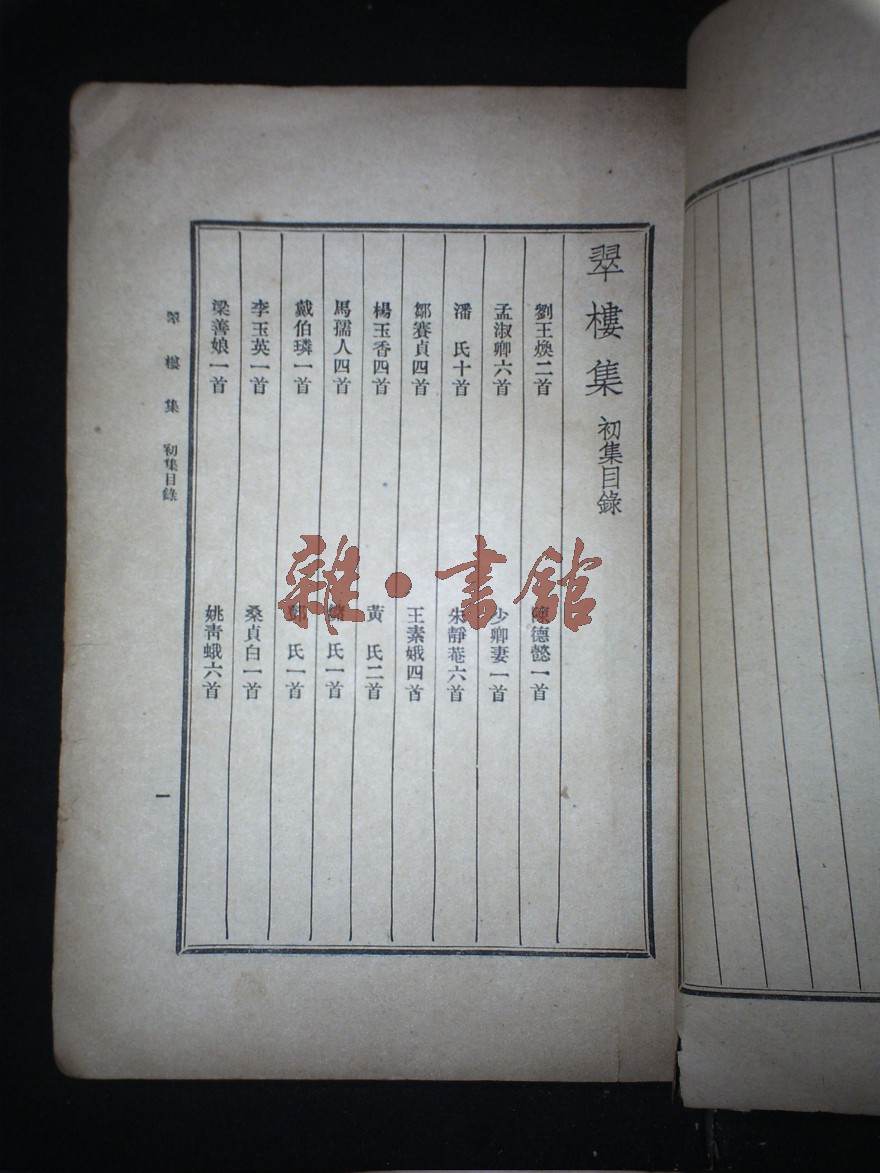 翠樓集 初集目錄
劉王煥二首
陳德懿一首
孟淑卿六首
少卿妻一首
潘 氏十首
朱靜菴六首
鄒賽貞四首
王素娥四首
楊玉香四首
黃 氏二首
馬孺人四首
氏一首
戴伯璘一首
氏一首
李玉英一首
桑貞白一首
梁善娘一首
姚靑蛾六首
翠樓集 初集目錄 一
雜·書館